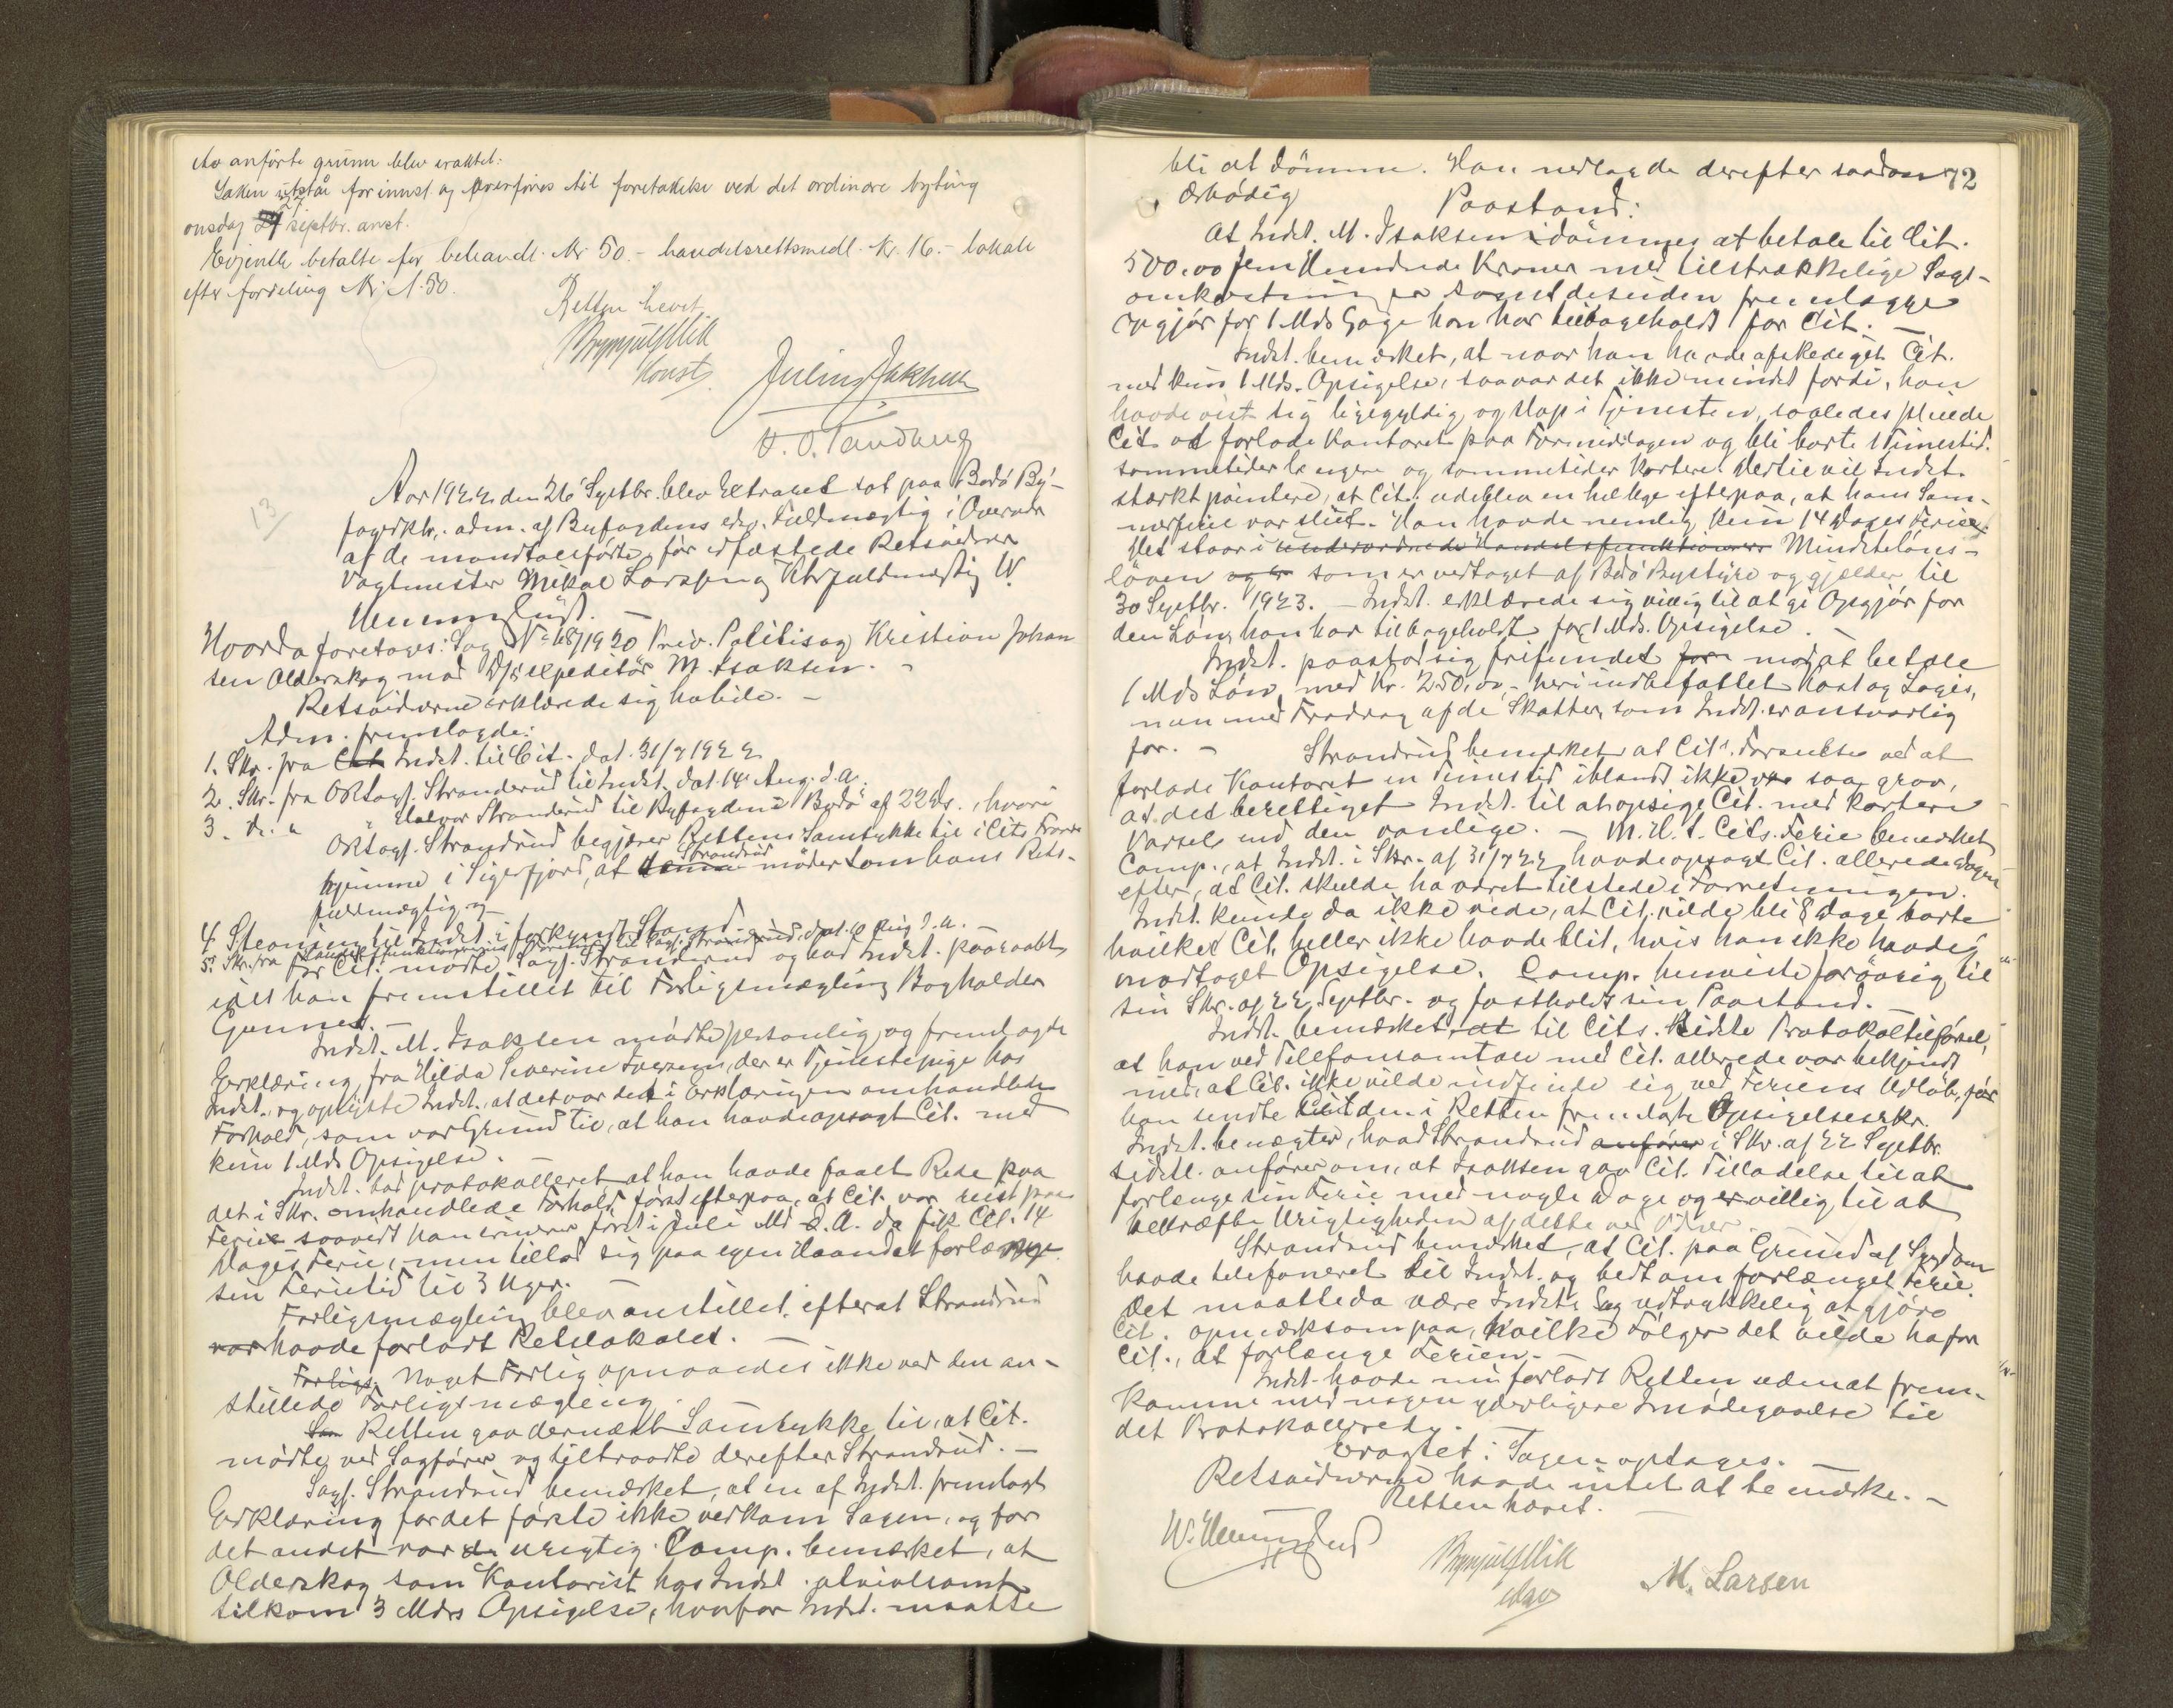 Av anførte grunn blev eraktet:
Saken utstår for innst. og overføres til foretakelse ved det ordinære byting
onsdag 27 septbr. anst.
Gebyr betalte for behandl. Kr. 50.- handelsrettsmedl. Kr. 16.- lokale
efter fordeling Kr. 1.50.
Retten hevet
Brynjulf Vik
konst.
Julius Jakhelln
H. O. Tandberg
13
Aar 1922 den 26 Septbr. blev Extraret sat paa Bodö By-
fogdktr., adm. af Byfogdens eds. Fuldmægtig i Overvær
af de mandtalsførte, før edfæstede Retsvidner
Vagtmester Mikal Larsen og Ktrfuldmægtig W.
Hvorda foretoges: Sag No 48/1920 Priv. Politisag Kristian Johan
sen Olderskog mod D/s expeditør M. Isaksen. -
Retsvidnerne erklærede sig habile. -
Adm. fremlagde:
1. Skr. fra Cit Indst. til Cit. dat. 31/7 1922
2. Skr. fra ORsagf. Strandrud til Indst. dat. 14 Aug. d.A.
3. do. " " Halvor Strandrud til Byfogden i Bodö af 22 ds., hvori
ORsagf. Strandrud begjærer Rettens Samtykke til i Cits Fravær
hjemme i Sigerfjord, at denne Strandrud møder som hans Rets-
fuldmægtig og
4. Stævning til Indst. i forkyndt Stand. -
5. Skr. fra Handelsfunktionærernes Forening til Sagf. Strandrud, dat. 10 Aug d.A.
For Cit. mødte Sagf. Strandrud og bad Indst. paaraabt
idet han fremstillet til Forligsmægling Bogholder
Gunnes. -
Indst. M. Isaksen mødte personlig og fremlagde
Erklæring fra Hilda Severine Iversen, der er Tjenestepige hos
Indst. og oplyste Indst., at det var det i Erklæringen omhandlede
Forhold, som var Grund til, at han havde opsagt Cit. med
kun 1 Mds Opsigelse. -
Indst. bad protokolleret at han havde faaet Rede paa
det i Skr. omhandlede Forhold først efterpaa, at Cit. var reist paa
Ferie saavidt han erindrer først i Juli Md d.A. da fik Cit. 14
Dages Ferie, men tillod sig paa egen Haand at forlænge
sin Ferietid til 3 Uger. -
Forligsmægling blev anstillet, efterat Strandrud
var havde forladt Retslokalet. -
Forligs. Noget Forlig opnaaedes ikke ved den an-
stillede Forligsmægling.
Sa Retten gav dernæst Samtykke til, at Cit.
mødte ved Sagfører og tiltraadte derefter Strandrud. -
Sagf. Strandrud bemærket, at en af Indst. fremlagt
Erklæring for det første ikke vedkom Sagen, og for
det andet var de urigtig. Comp. bemærket, at
Olderskog som Kontorist hos Indst. utvivlsomt
tilkom 3 Mdrs Opsigelse, hvorfor Indst. maatte
bli at dömme. Han nedlagde derefter saadan 72
ærbødig
Paastand:
At Indst. M. Isaksen idömmes at betale til Cit.
500,00 fem Hundrede Kroner med tilstrækkelige Sags-
omkostninger samt desuden fremlægge
opgjør for 1 Mds Gage han har tilbageholdt for Cit. -
Indst. bemærket, at naar han havde afskediget Cit.
med kun 1 Mds. Opsigelse, saa var det ikke mindst fordi, han
havde vist sig ligegyldig og slap i Tjenesten, saaledes pleiede
Cit at forlade Kontoret paa Formiddagen og bli borte 1 Timestid.
sommetider længere og sommetider kortere. Dertil vil Indst.
stærkt pointere, at Cit. udeblev en hel Uge efterpaa, at hans Som-
merferie var slut. Han havde nemlig kun 14 Dages Ferie.
Det staar i underordnede Handelsfunktionærer Mindstelöns-
löven og er som er vedtaget af Bodö Bystyre og gjælder til
30 Septbr. 1923. - Indst. erklærede sig villig til at gi Opgjør for
den Løn, han har tilbageholdt for 1 Mds. Opsigelse. -
Indst. paastod sig frifundet for mod at betale
1 Mds Løn med Kr. 250,00, - heri indbefattet Kost og Logis,
men med Fradrag af de Skatter, som Indst. er ansvarlig
for. - Strandrud bemærket at Cits. Forseelse ved at
forlade Kontoret en Timestid iblandt ikke var saa grov,
at det berettiget Indst. til at opsige Cit. med kortere
Varsel end den vanlige. - M.H.t. Cits. Ferie bemærket
Comp., at Indst. i Skr. af 31/7 22 havde opsagt Cit. allerede Dagen
efter, at Cit. skulde ha været tilstede i Forretningen.
Indst. kunde da ikke vide, at Cit. vilde bli 8 dage borte
hvilket Cit. heller ikke havde blit, hvis han ikke havde
modtaget Opsigelse. Comp. henviste forøvrig til
sin Skr. af 22 Septbr. og fastholdt sin Paastand.
Indst. bemærket, at til Cits. sidste Protokoltilførsel,
at han ved Telefonsamtale med Cit. allerede var bekjendt
med, at Cit. ikke vilde indfinde sig ved Feriens Udløb, før
han sendte Cit den i Retten fremlagte Opsigelsesskr.
Indst. benægter, hvad Strandrud anfører i Skr. af 22 Septbr.
sidstl. anfører om, at Isaksen gav Cit. Tilladelse til at
forlænge sin Ferie med nogle Dage og er villig til at
bekræfte Urigtigheden af dette ved Vidner.
Strandrud bemærket, at Cit. paa Grund af Sygdom
havde telefoneret til Indst. og bedt om forlænget Ferie.
Det maatte da være Indsts Sag udtrykkelig at gjøre
Cit. opmærksom paa, hvilke Følger det vilde ha for
Cit., at forlænge Ferien. -
Indst. havde nu forladt Retten uden at frem-
komme med nogen yderligere Imødegaaelse til
det Protokollerede.
Eragtet: Sagen optages. -
Retsvidnerne havde intet at bemærke. -
Retten hævet.
Brynjulf Vik
M. Larsen